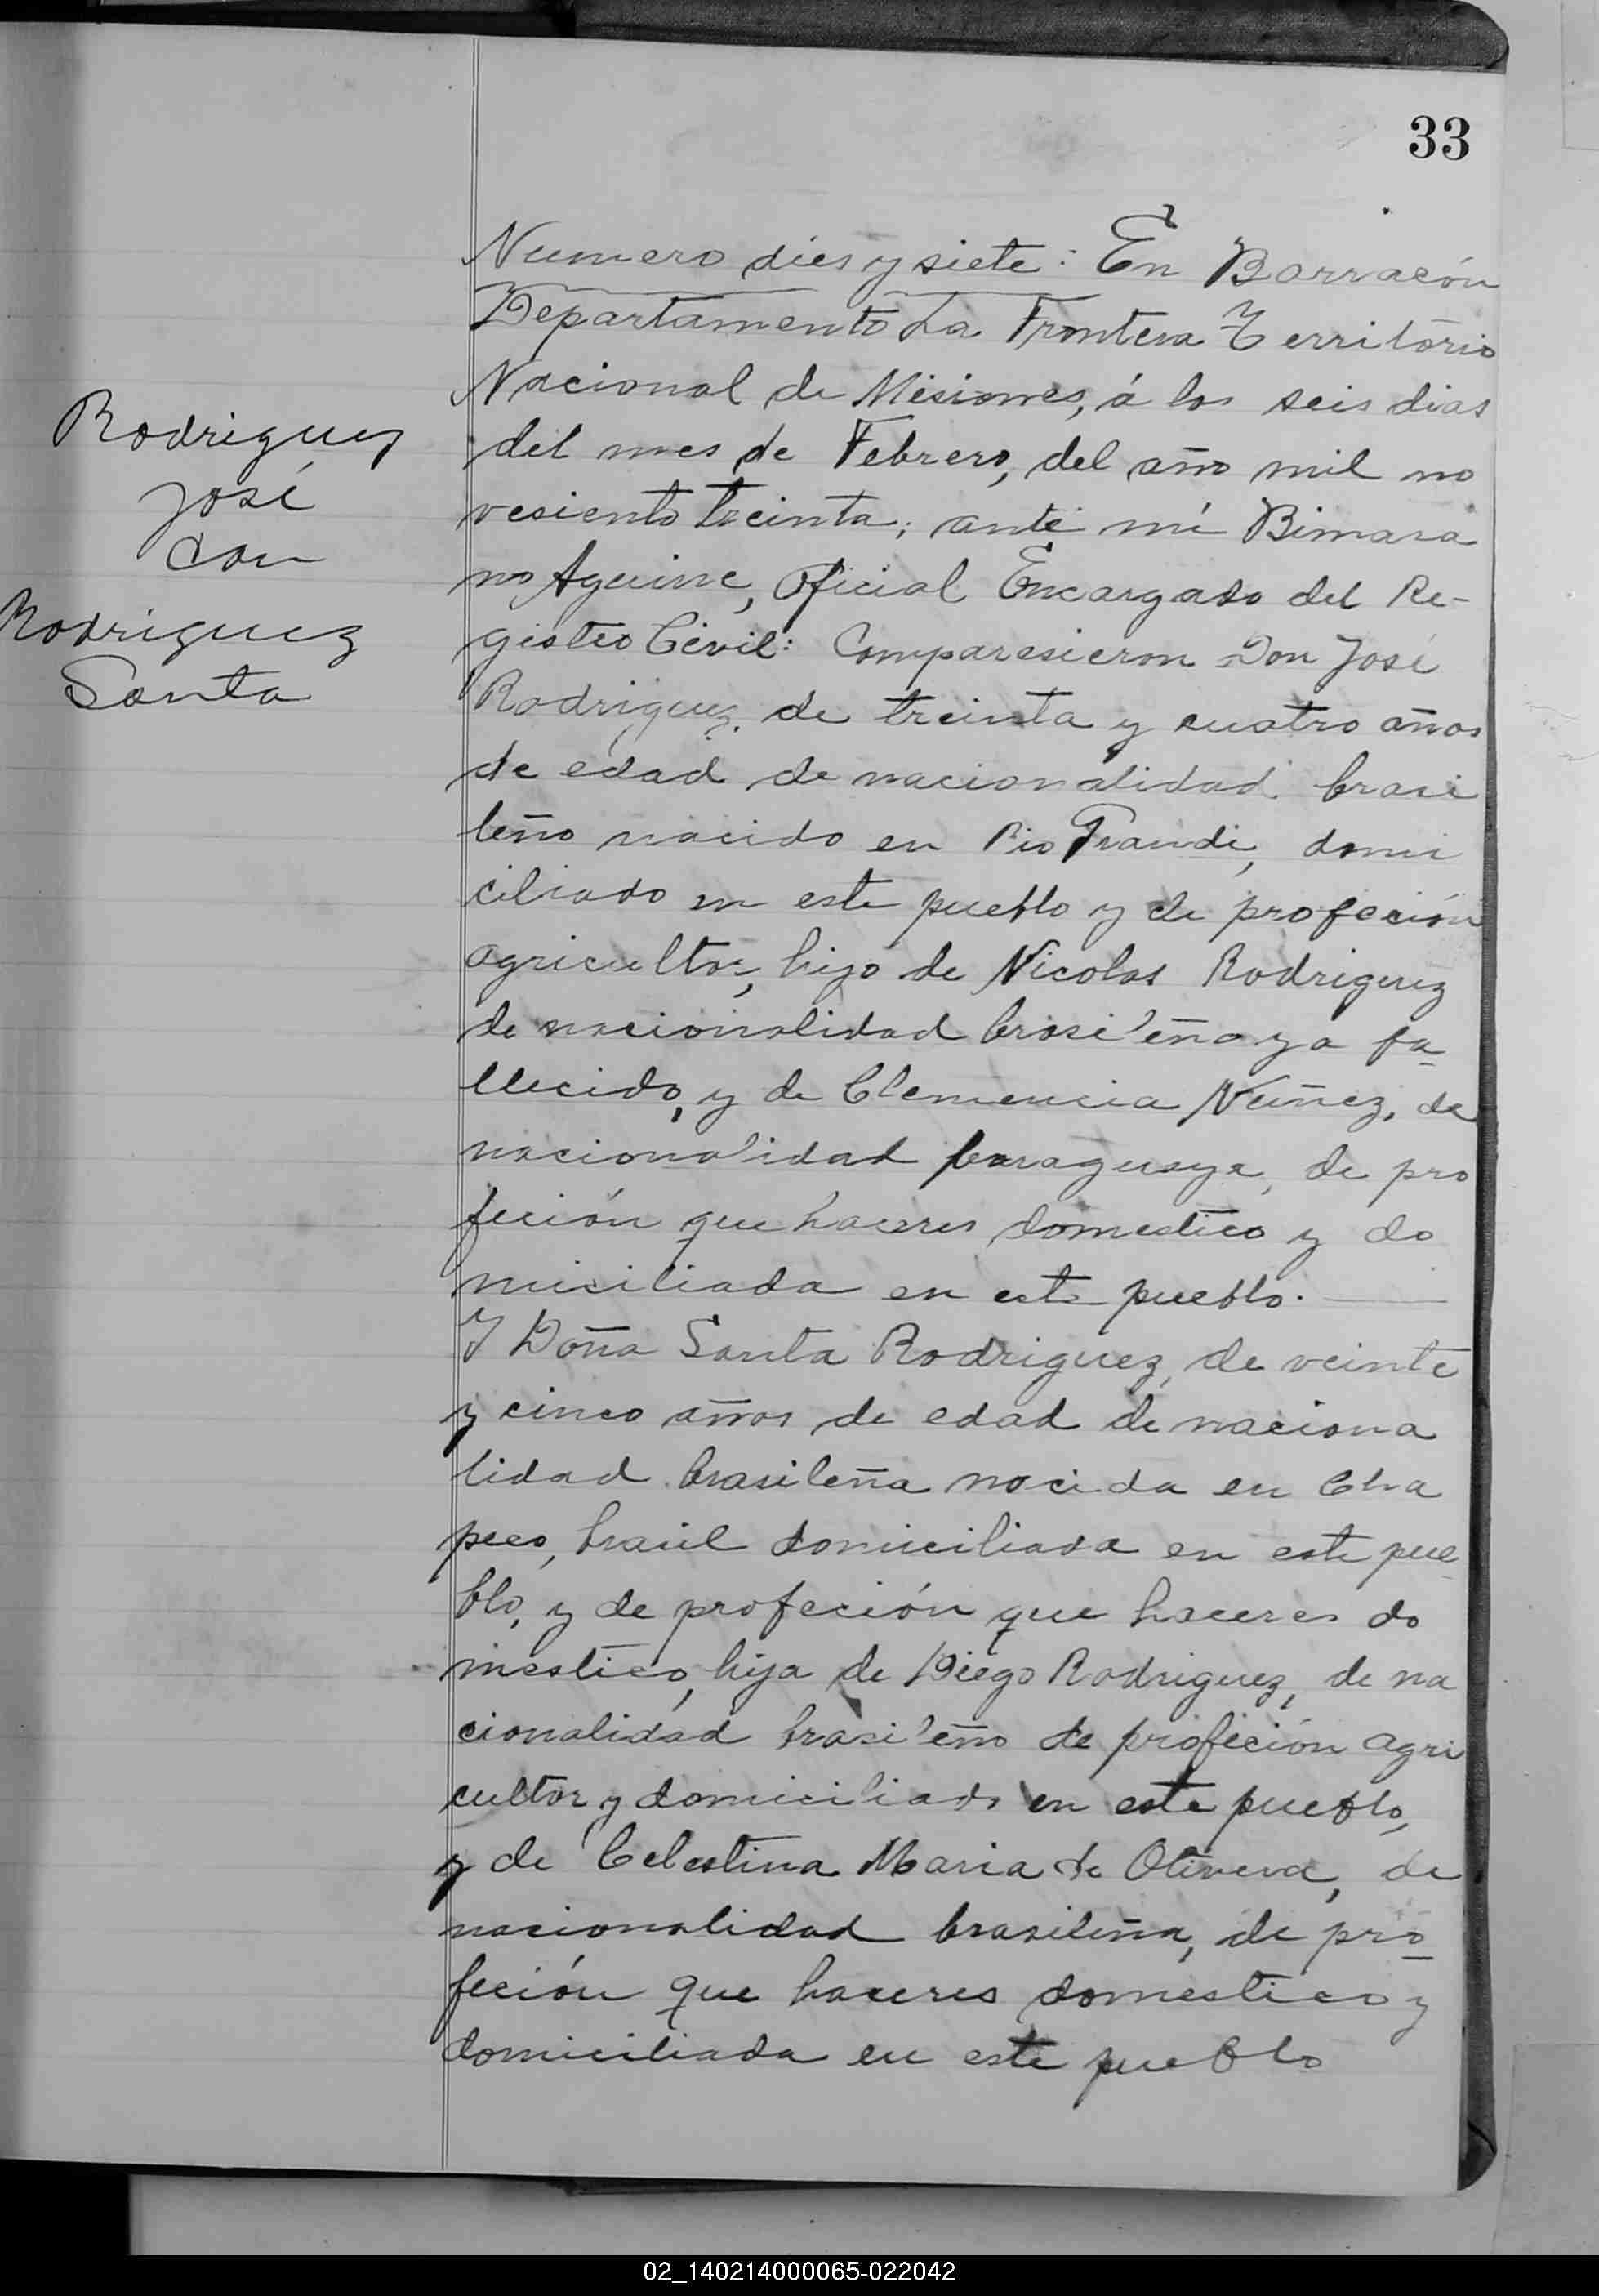 33
Rodriguez
José
con
Rodriguez
Santa
Numero dies y siete: En Barracón
Departamento La Frontera Territorio
Nacional de Misiones, á los seis dias
del mes de Febrero, del año mil no
vesiento treinta; ante mí Bimara
no Aguirre, Oficial Encargado del Re-
gistro Civil: Comparesieron Don José
Rodriguez, de treinta y cuatro años
de edad de nacionalidad brasi
leño nacido en Rio Grandi, domi
ciliado en este pueblo y de profeción
agricultor, hijo de Nicolas Rodriguez
de nacionalidad brasileña ya fa-
llecido, y de Clemencia Nuñez, de
nacionalidad paraguaya, de pro
feción que haceres domestico y do
miciliada en este pueblo.
Y Doña Santa Rodriguez, de veinte
y cinco años de edad de naciona
lidad brasileña nacida en Cha
peco, brasil domiciliada en este pue-
blo, y de profeción que haceres do
mestico, hija de Diego Rodriguez, de na
cionalidad brasileño de profeción agri
cultor y domiciliado en este pueblo,
y de Celestina Maria de Olivera, de
nacionalidad brasileña, de pro-
feción que haceres domestico y
domiciliada en este pueblo
02_140214000065-022042